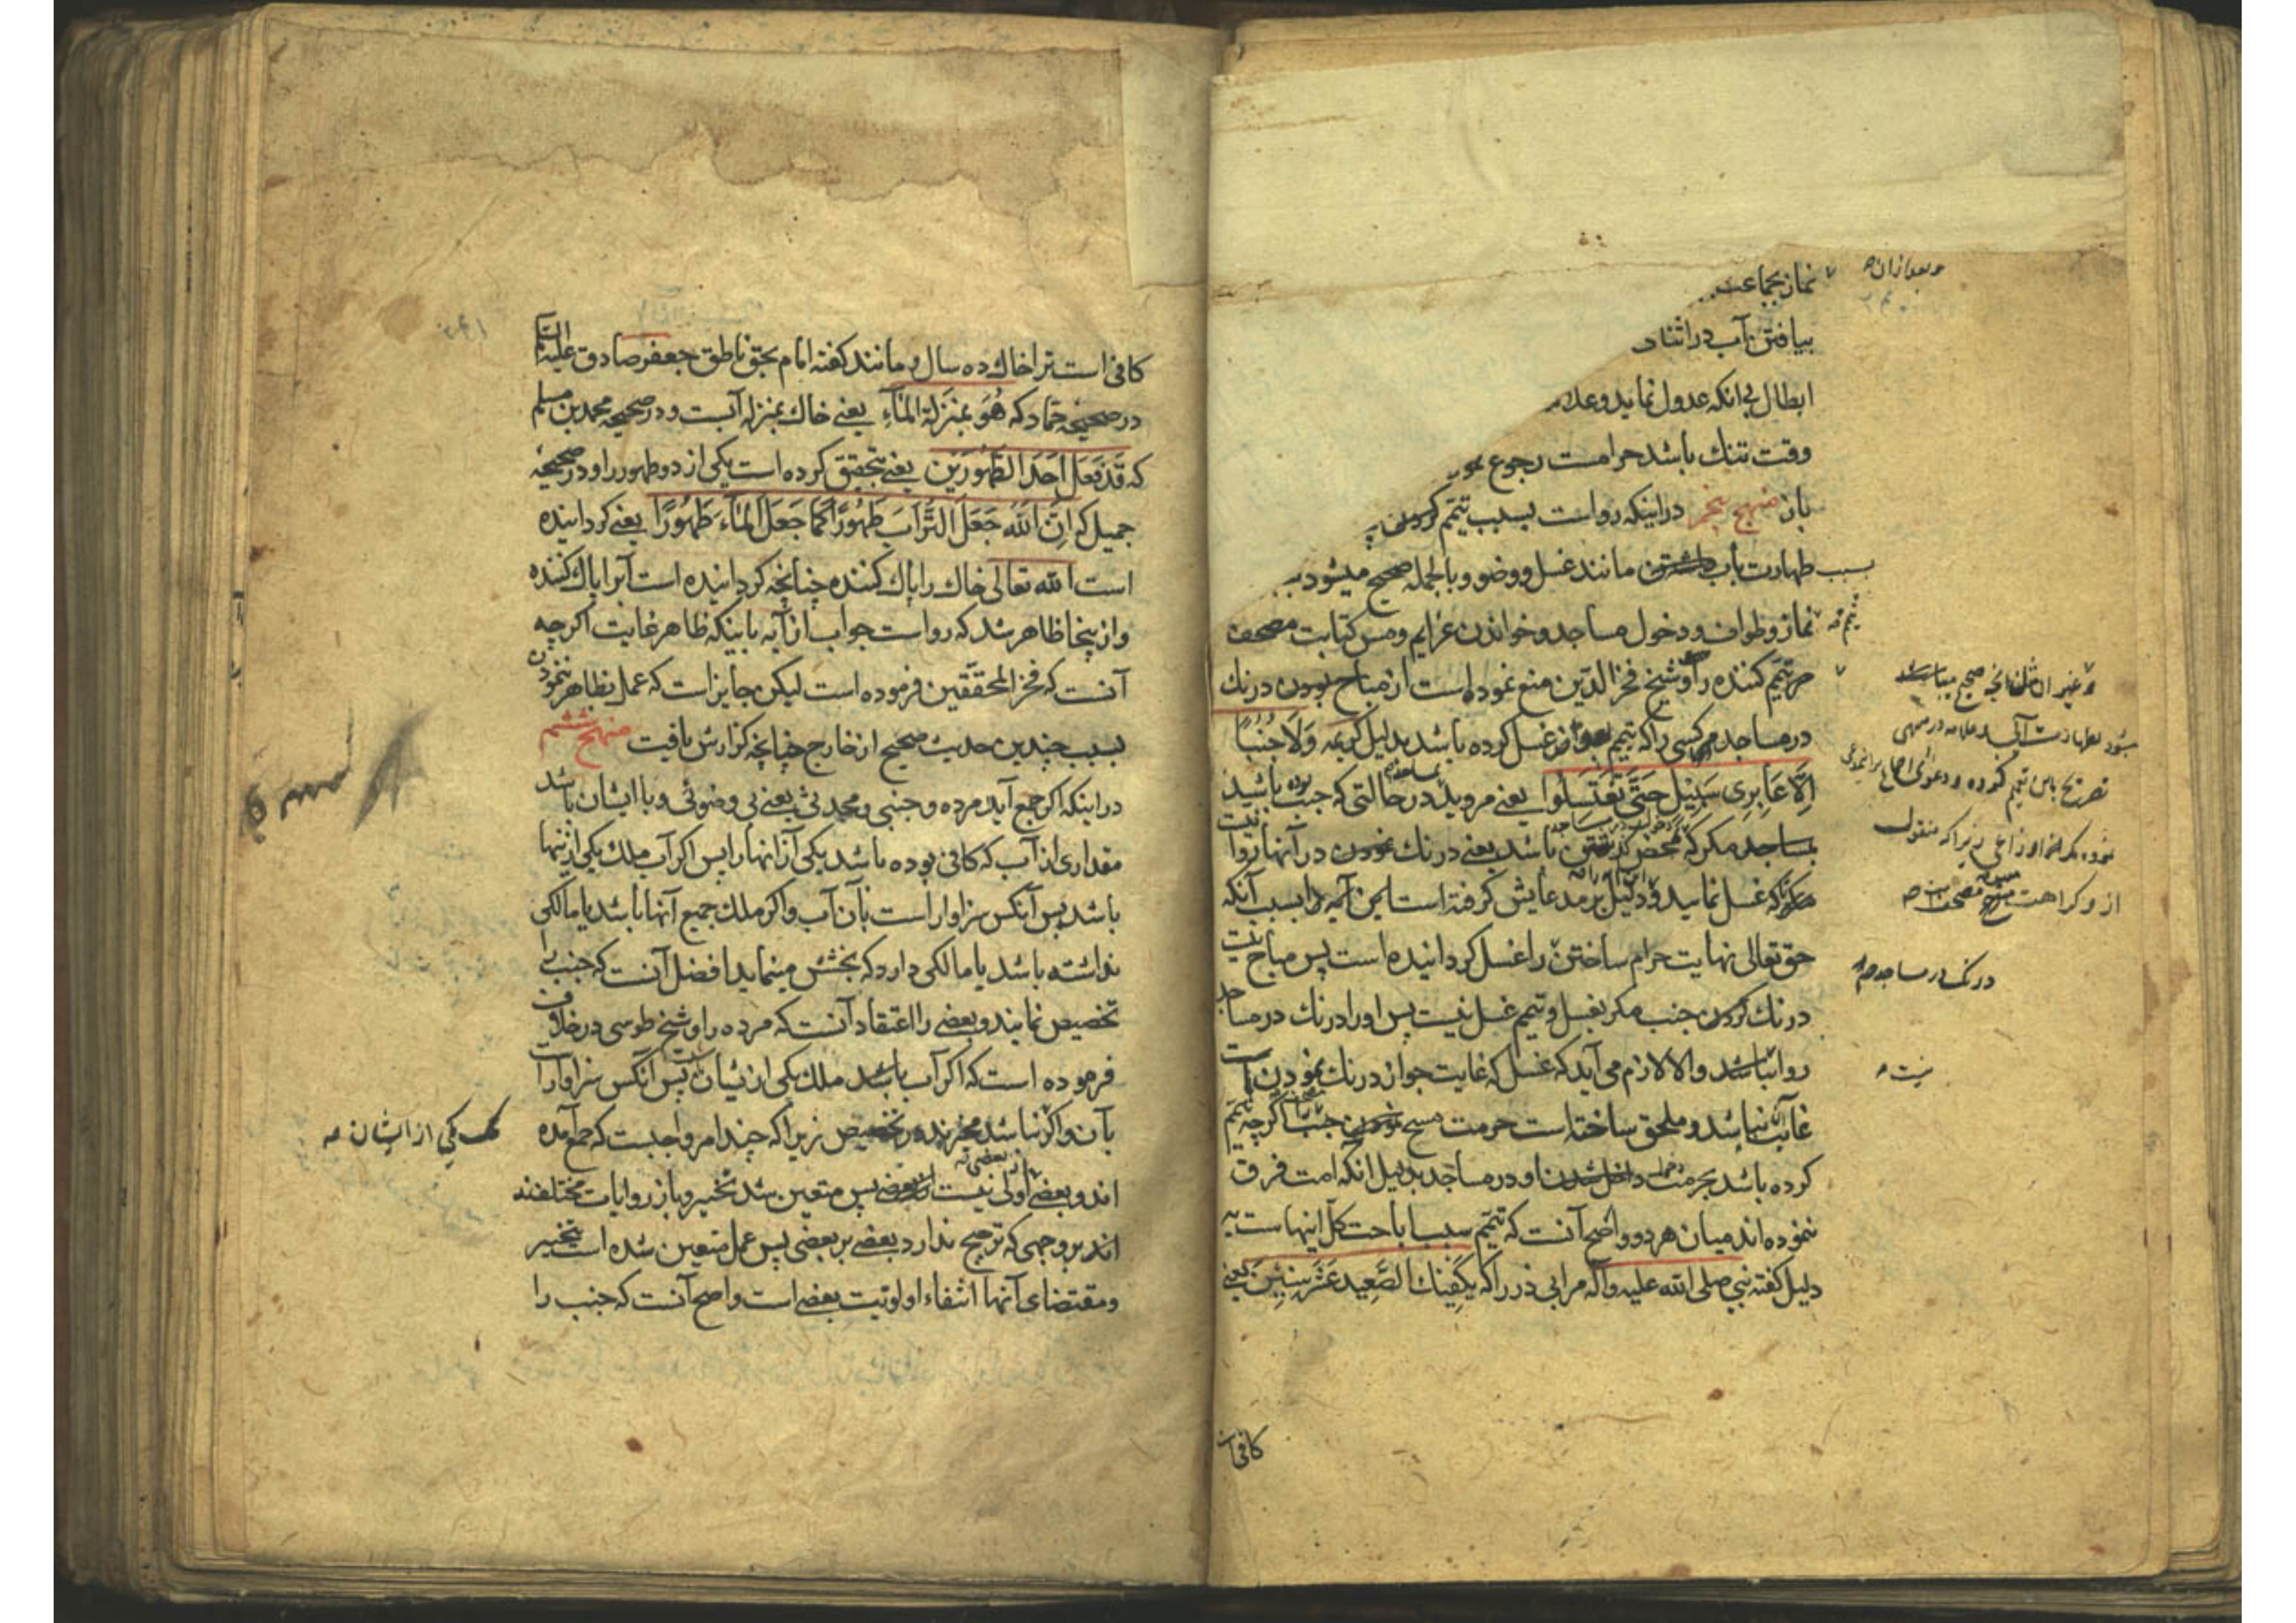 نماز بجماعت
بیافتن آب در اثناء
ابطال بی انکه عدول نماید و
وقت تنك باشد حرامست رجوع
بان منهج پنجم در اینکه رواست بسبب تیمم کردن
بسبب طهارت بآب مانند غسل و وضو و بالجمله صحیح میشود
نماز و طواف و دخول مساجد و خواندن عزایم و مس کتابت مصحف
مر تیمم کننده را و شیخ فخر الدین منع نموده است از مباح بودن درنك
در مساجد مر کسی را که تیمم بعوض غسل کرده باشد بدلیل کریمه وَلَا جُنُبًا
اِلَّا عَابِرِی سَبِیْلٍ حَتَّی تَغْتَسِلُوا یعنی مروید در حالتی که جنب باشید
بمساجد مکر که محض باشد یعنی درنك نمودن در آنها روا نیست
که غسل نمایید و دلیل بر مدعایش کرفته است این آیه را بسبب آنکه
حق تعالی نهایت حرام ساختن را غسل کردانیده است پس مباح نیست
درنك کردن جنب مکر بغسل و تیمم غسل نیست پس او را درنك در مساجد
روا نباشد والا لازم می آید که غسل که غایت جواز درنك نمودن است
غایت نباشد و ملحق ساخته است حرمت مسح نمودن جنب اکرچه تیمم
کرده باشد بحرمت داخل شدن او در مساجد بدلیل انکه امت فرق
ننموده اند میان هر دو و اصح آنست که تیمم سبب اباحت کل اینهاست به
دلیل کفته نبی صلی الله علیه وآله مر ابی ذر را که یَکْفِیْكَ الصَّعِیْد عَشْرَ سِنِیْنَ یعنی
کافی است
و بعد از ان
درنك در مساجد
نیست
کافی است ترا خاك ده سال و مانند کفته امام بحق ناطق جعفر صادق علیه السلام
در صحیحه حماد که هُوَ بِمَنْزِلَةِ الْمَاءِ یعنی خاك بمنزله آبست و در صحیحه محمد بن مسلم
که قَدْ فَعَلَ اَحَدَ الطَّهُورَیْنِ یعنی بتحقیق کرده است یکی از دو طهور را و در صحیحه
جمیل که اِنَّ اللّٰهَ جَعَلَ التُّرَابَ طَهُوْرًا کَمَا جَعَلَ الْمَاءَ طَهُوْرًا یعنی کردانیده
است الله تعالی خاك را پاك کننده چنانچه کردانیده است آبرا پاك کننده
و از ینجا ظاهر شد که رواست جواب از آیه باینکه ظاهر غایت اکرچه
آنست که فخر المحققین فرموده است لیکن جایز است که عمل بظاهر ننمودن
بسبب چندین حدیث صحیح از خارج چنانچه کزارش یافت منهج ششم
در اینکه اکر جمع آید مرده و جنبی و محدثی یعنی بی وضوئی و با ایشان باشد
مقداری از آب که کافی بوده باشد یکی از آنها را پس اکر آب ملك یکی از اینها
باشد پس آنکس سزاوار است بآن آب و اکر ملك جمیع آنها باشد یا مالکی
نداشته باشد یا مالکی دارد که بخشش مینماید افضل آنست که جنب را
تخصیص نمایند و بعضی را اعتقاد آنست که مرده را و شیخ طوسی در خلاف
فرموده است که اکر آب باشد ملك یکی از یشان پس آنکس سزاوار است
بآن و اکر نباشد مخیرند در تخصیص زیرا که چند امر واجبست که جمع آمده
اند و بعضی اولی نیست از بعضی پس متعین شد تخییر و باز روایات مختلفند
اند بر وجهی که ترجیح ندارد بعضی بر بعضی پس عمل متعین شده است بتخییر
و مقتضای آنها انتفاء اولویت بعضی است و اصح آنست که جنب را
ملك یکی از ایشان